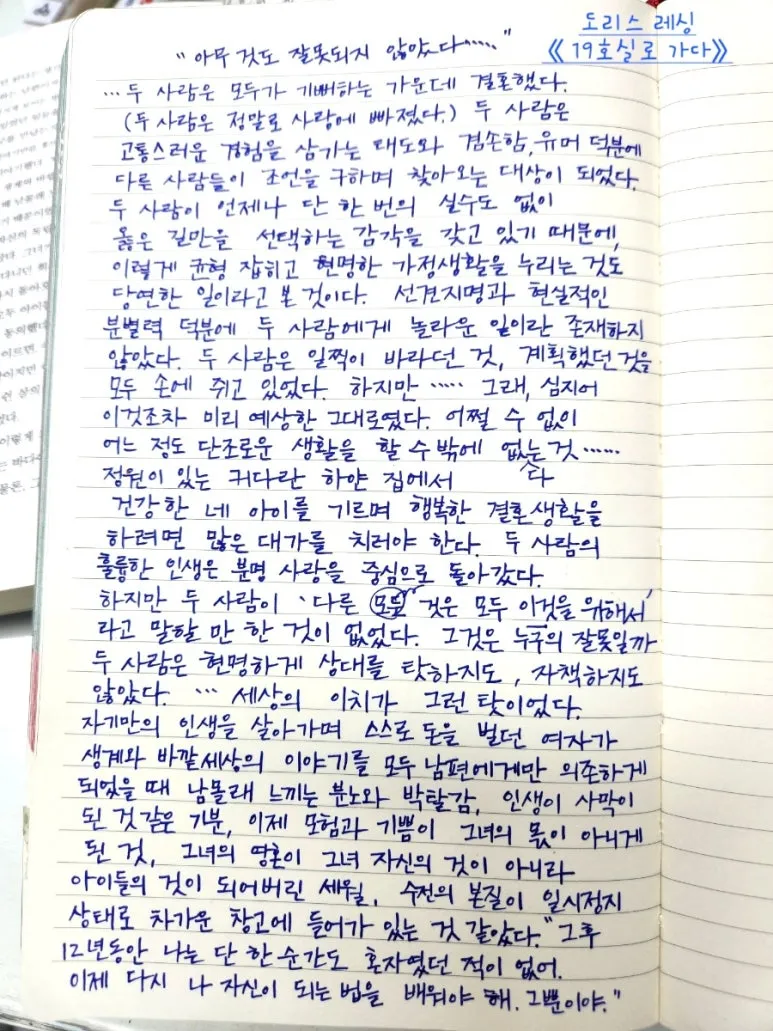 도리스 레싱
《19호실로 가다》
"아무것도 잘못되지 않았다....."
…두 사람은 모두가 기뻐하는 가운데 결혼했다.
(두 사람은 정말로 사랑에 빠졌다.) 두 사람은
고통스러운 경험을 삼가는 태도와 겸손함, 유머 덕분에
다른 사람들이 조언을 구하며 찾아오는 대상이 되었다.
두 사람이 언제나 단 한 번의 실수도 없이
옳은 길만을 선택하는 감각을 갖고 있기 때문에,
이렇게 균형 잡히고 현명한 가정생활을 누리는 것도
당연한 일이라고 본 것이다. 선견지명과 현실적인
분별력 덕분에 두 사람에게 놀라운 일이란 존재하지
않았다. 두 사람은 일찍이 바라던 것, 계획했던 것을
모두 손에 쥐고 있었다. 하지만 ..... 그래, 심지어
이것조차 미리 예상한 그대로였다. 어쩔 수 없이
어느 정도 단조로운 생활을 할 수밖에 없는 것......
정원이 있는 커다란 하얀 집에서 다
건강한 네 아이를 기르며 행복한 결혼생활을
하려면 많은 대가를 치러야 한다. 두 사람의
훌륭한 인생은 분명 사랑을 중심으로 돌아갔다.
하지만 두 사람이 '다른 모든 것은 모두 이것을 위해서'
라고 말할 만 한 것이 없었다. 그것은 누구의 잘못일까
두 사람은 현명하게 상대를 탓하지도, 자책하지도
않았다. … 세상의 이치가 그런 탓이었다.
자기만의 인생을 살아가며 스스로 돈을 벌던 여자가
생계와 바깥세상의 이야기를 모두 남편에게만 의존하게
되었을 때 남몰래 느끼는 분노와 박탈감, 인생이 사막이
된 것 같은 기분, 이제 모험과 기쁨이 그녀의 몫이 아니게
된 것, 그녀의 영혼이 그녀 자신의 것이 아니라
아이들의 것이 되어버린 세월, 수전의 본질이 일시정지
상태로 차가운 창고에 들어가 있는 것 같았다. "그후
12년동안 나는 단 한 순간도 혼자였던 적이 없어.
이제 다시 나 자신이 되는 법을 배워야 해. 그뿐이야."